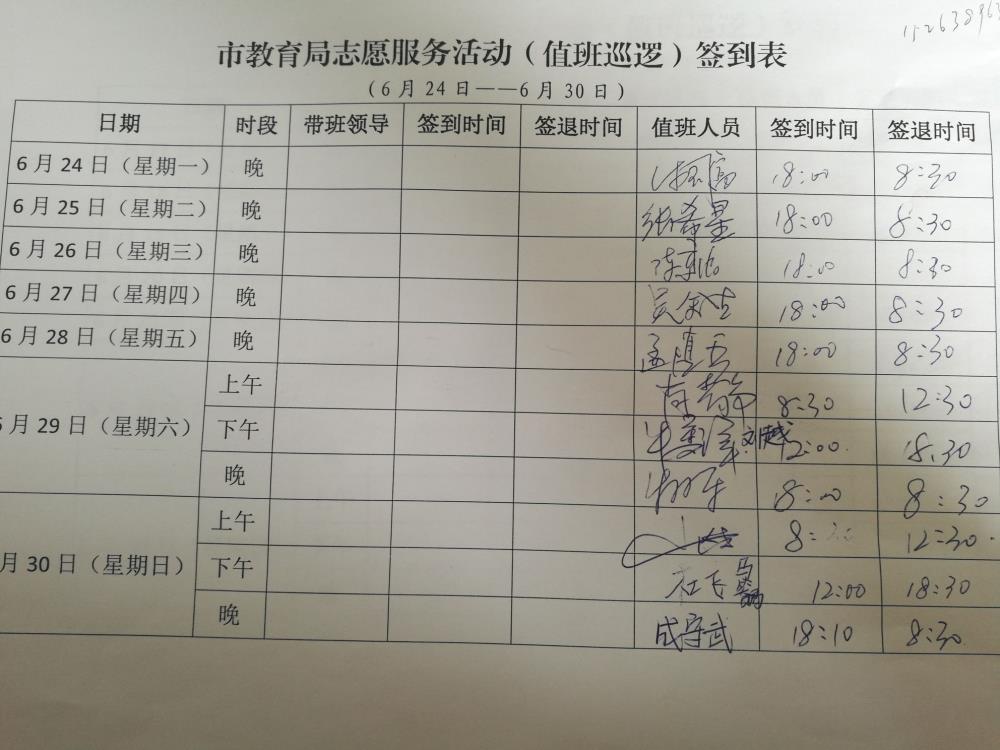 市教育局志愿服务活动（值班巡逻）签到表
（6月24日——6月30日）
日期 时段 带班领导 签到时间 签退时间 值班人员 签到时间 签退时间
6月24日（星期一） 晚 18:00 8:30
6月25日（星期二） 晚 张希星 18:00 8:30
6月26日（星期三） 晚 18:00 8:30
6月27日（星期四） 晚 18:00 8:30
6月28日（星期五） 晚 18:00 8:30
月29日（星期六） 上午 8:30 12:30
下午 刘越 12:00 18:30
晚 18:00 8:30
月30日（星期日） 上午 8:30 12:30
下午 杜飞 12:00 18:30
晚 成守武 18:10 8:30